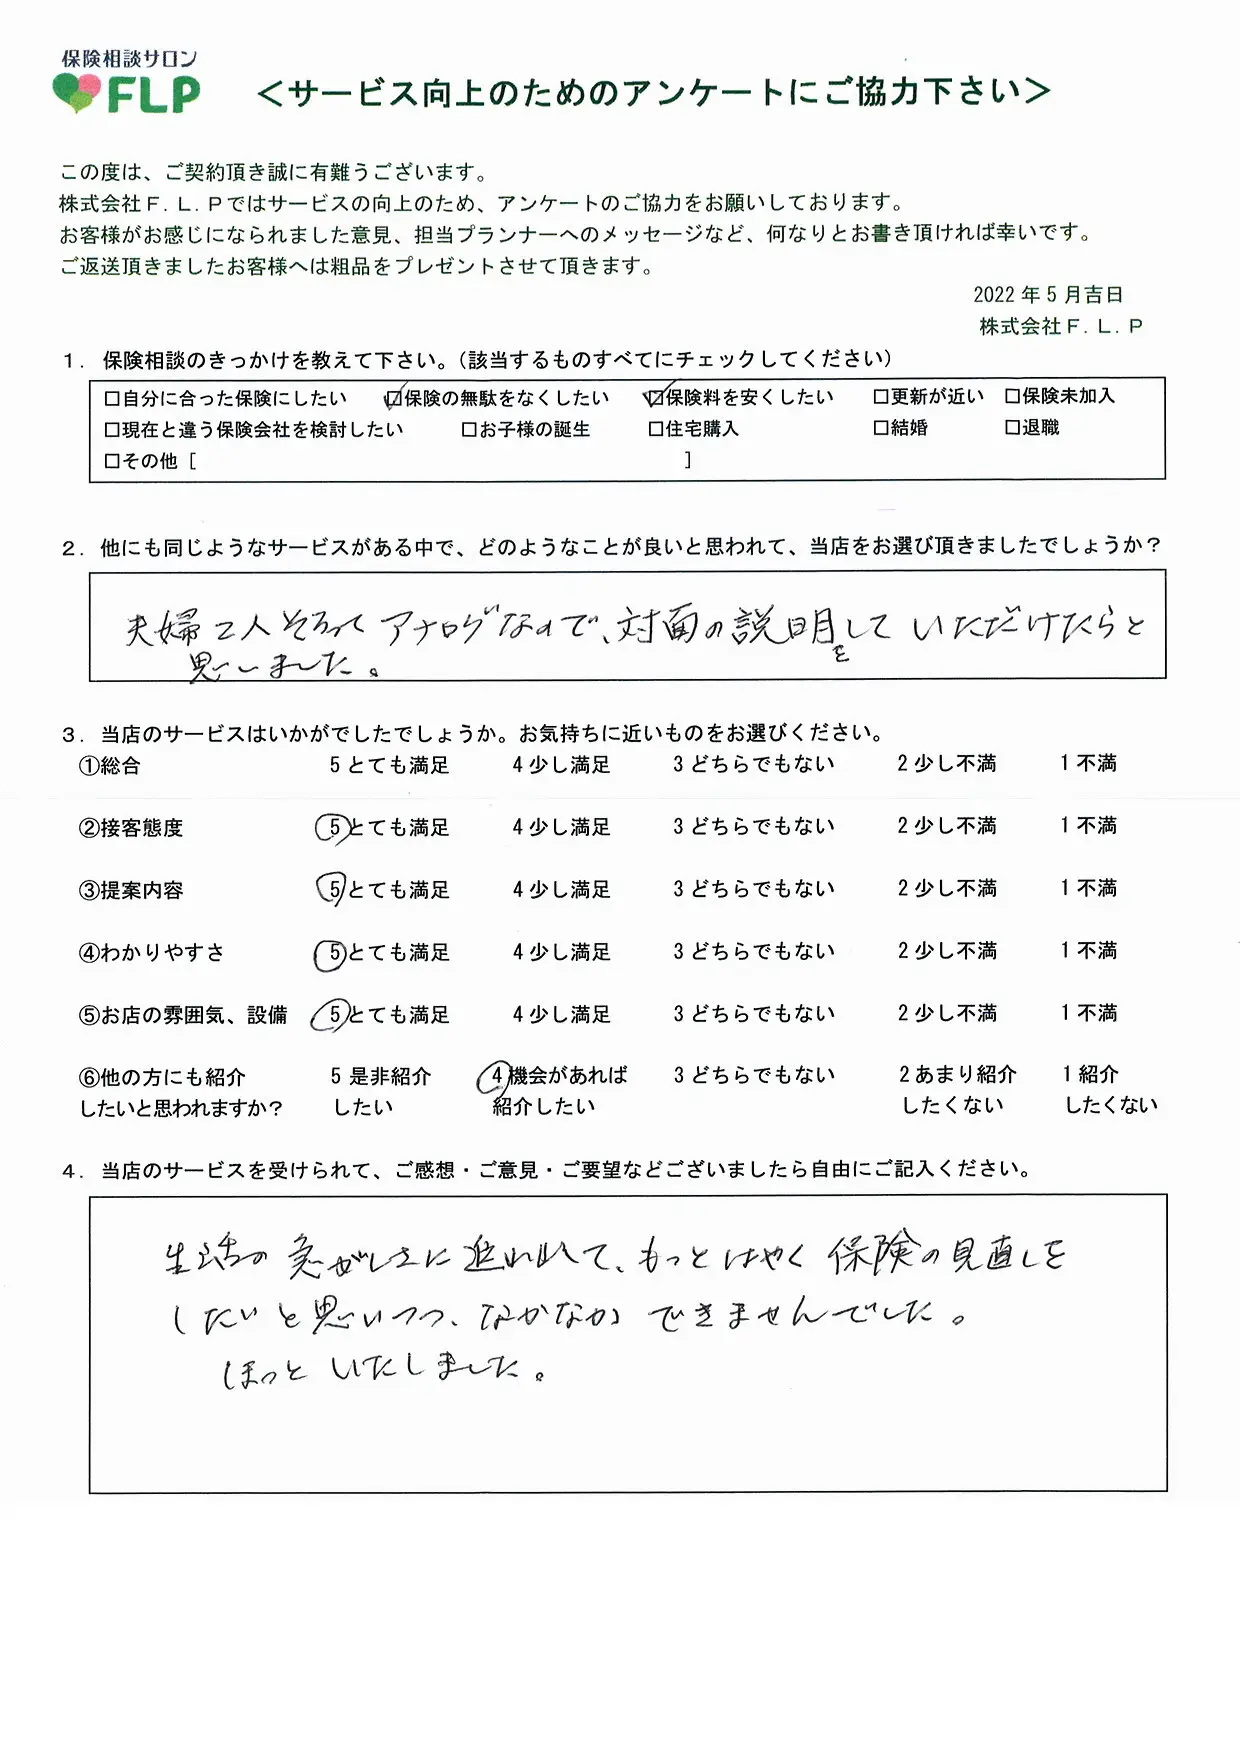 保険相談サロン
FLP
＜サービス向上のためのアンケートにご協力下さい＞
この度は、ご契約頂き誠に有難うございます。
株式会社Ｆ.Ｌ.Ｐではサービスの向上のため、アンケートのご協力をお願いしております。
お客様がお感じになられました意見、担当プランナーへのメッセージなど、何なりとお書き頂ければ幸いです。
ご返送頂きましたお客様へは粗品をプレゼントさせて頂きます。
2022 年 5 月吉日
株式会社Ｆ.Ｌ.Ｐ
１．保険相談のきっかけを教えて下さい。（該当するものすべてにチェックしてください）
□自分に合った保険にしたい ☑保険の無駄をなくしたい ☑保険料を安くしたい □更新が近い □保険未加入
□現在と違う保険会社を検討したい □お子様の誕生 □住宅購入 □結婚 □退職
□その他［ ］
２．他にも同じようなサービスがある中で、どのようなことが良いと思われて、当店をお選び頂きましたでしょうか？
夫婦２人そろってアナログなので、対面の説明をしていただけたらと
思いました。
３．当店のサービスはいかがでしたでしょうか。お気持ちに近いものをお選びください。
①総合 5 とても満足 4 少し満足 3 どちらでもない 2 少し不満 1 不満
②接客態度 5 とても満足 4 少し満足 3 どちらでもない 2 少し不満 1 不満
③提案内容 5 とても満足 4 少し満足 3 どちらでもない 2 少し不満 1 不満
④わかりやすさ 5 とても満足 4 少し満足 3 どちらでもない 2 少し不満 1 不満
⑤お店の雰囲気、設備 5 とても満足 4 少し満足 3 どちらでもない 2 少し不満 1 不満
⑥他の方にも紹介 5 是非紹介 4 機会があれば 3 どちらでもない 2 あまり紹介 1 紹介
したいと思われますか？ したい 紹介したい したくない したくない
４．当店のサービスを受けられて、ご感想・ご意見・ご要望などございましたら自由にご記入ください。
生活の急がしさに追われて、もっとはやく保険の見直しを
したいと思いつつ、なかなかできませんでした。
ほっといたしました。